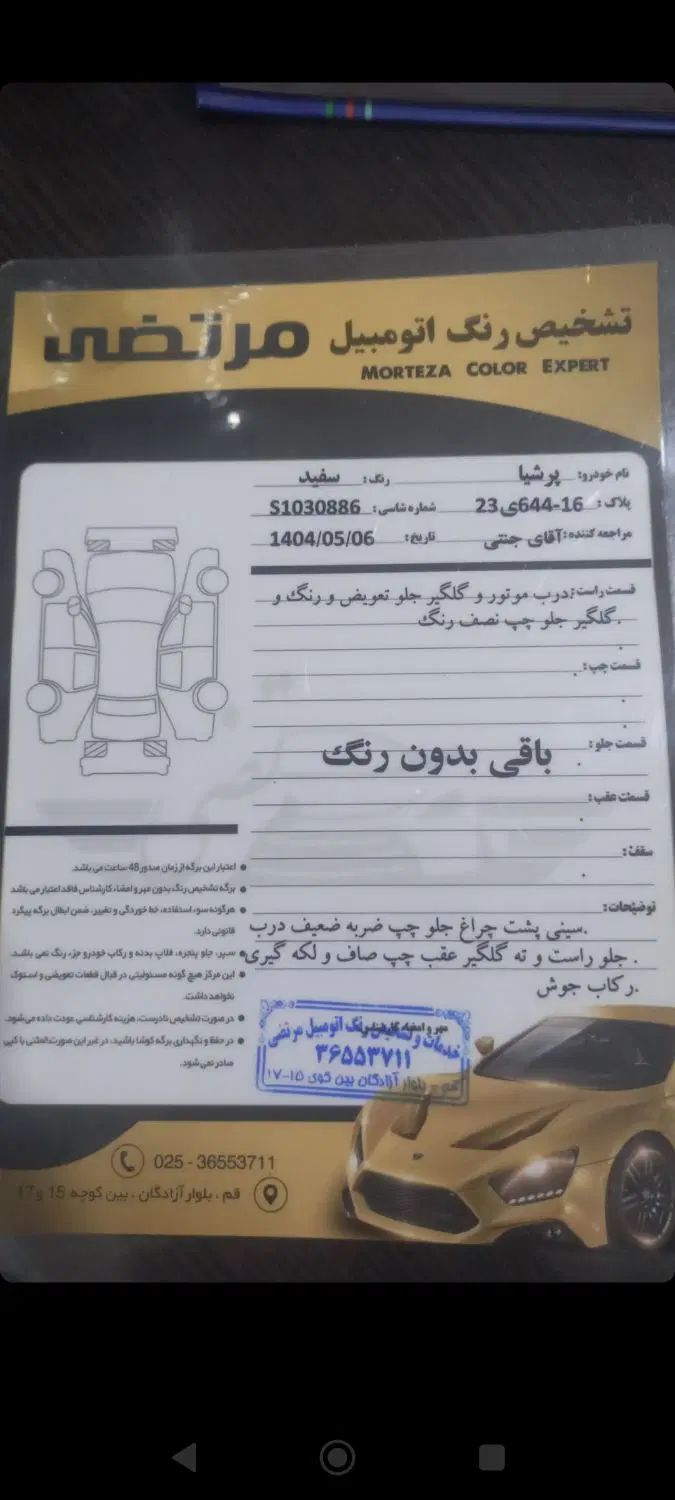 تشخیص رنگ اتومبیل مرتضی
MORTEZA COLOR EXPERT
نام خودرو: پرشیا رنگ: سفید
پلاک: 16-644ی23 شماره شاسی: S1030886
مراجعه کننده: آقای جنتی تاریخ: 1404/05/06
قسمت راست: درب موتور و گلگیر جلو تعویض و رنگ و
گلگیر جلو چپ نصف رنگ.
قسمت چپ:
قسمت جلو: باقی بدون رنگ
قسمت عقب:
سقف:
توضیحات:
سینی پشت چراغ جلو چپ ضربه ضعیف درب.
جلو راست و ته گلگیر عقب چپ صاف و لکه گیری.
رکاب جوش.
● اعتبار این برگه از زمان صدور 48 ساعت می باشد.
● برگه تشخیص رنگ بدون مهر و امضاء کارشناس فاقد اعتبار می باشد
● هرگونه سوء استفاده، خط خوردگی و تغییر، ضمن ابطال برگه پیگرد
قانونی دارد.
● سپر، جلو پنجره، قلاب بدنه و رکاب خودرو جزء رنگ نمی باشد.
● این مرکز هیچ گونه مسئولیتی در قبال قطعات تعویضی و استوک
نخواهد داشت.
● در صورت تشخیص نادرست، هزینه کارشناسی عودت داده می شود.
● در حفظ و نگهداری برگه کوشا باشید، در غیر این صورت المثنی یا کپی
صادر نمی شود.
مهر و امضاء کارشناس
خدمات و تشخیص رنگ اتومبیل مرتضی
۳۶۵۵۳۷۱۱
قم - بلوار آزادگان بین کوی ۱۵-۱۷
025 - 36553711
قم ، بلوار آزادگان ، بین کوچه 15 و 17